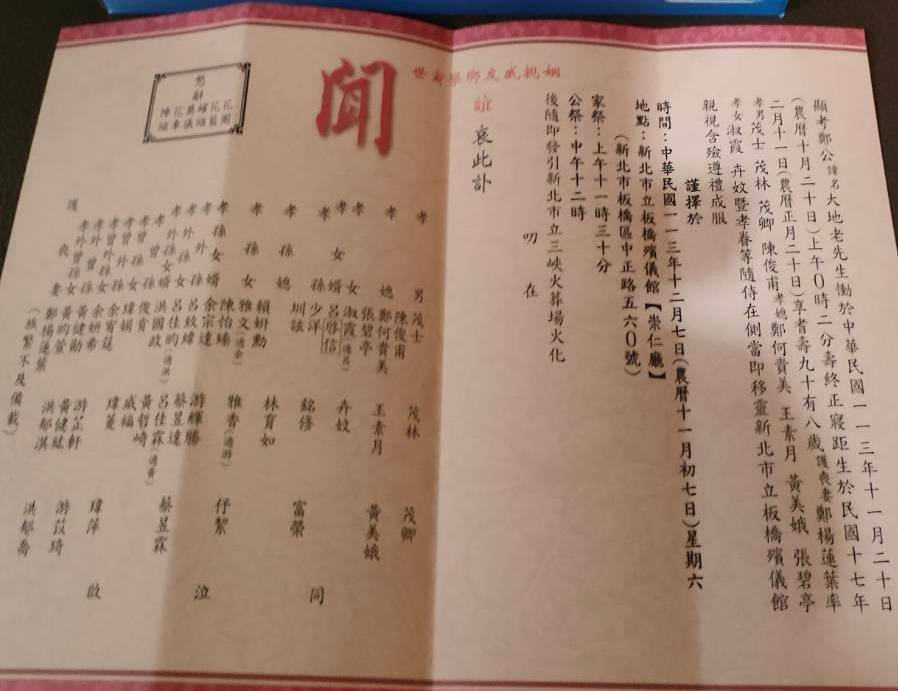 顯考鄭公諱名大地老先生慟於中華民國一一三年十一月二十日
(農曆十月二十日)上午0時二分壽終正寢距生於民國十七年
二月十一日(農曆正月二十日)享耆壽九十有八歲護喪妻鄭楊蓮葉率
孝男茂士 茂林 茂卿 陳俊甫 孝媳鄭何貴美 王素月 黃美娥 張碧亭
孝女淑霞 卉妏暨孝眷等隨侍在側當即移靈新北市立板橋殯儀館
親視含殮遵禮成服
謹擇於
時間:中華民國一一三年十二月七日(農曆十一月初七日)星期六
地點:新北市立板橋殯儀館【崇仁廳】
(新北市板橋區中正路五六0號)
家祭:上午十一時三十分
公祭:中午十二時
後隨即發引新北市立三峽火葬場火化
叨在
姻親戚友鄉學寅世
誼 哀此訃
聞
懇辭
花圈 花籃 罐頭 奠儀 花車 陣頭
孝男 茂士 茂林 茂卿
陳俊甫
孝媳 鄭何貴美 王素月 黃美娥
張碧亭
孝女 淑霞(適呂) 卉妏
孝女婿 呂啓信
孝孫 少洋 銘修 富榮 同
圳該
孝孫媳 賴妍勳 林育如
孝孫女 雅文(適余) 雅香(適游) 伃絜
陳怡臻
孝孫女婿 余宗達 游輝勝 泣
孝外孫 呂紋緯 蔡昱達
孝外孫女 呂佳昀(適洪) 呂佳霖(適黃) 蔡昱霖
孝外孫女婿 洪國政 黃哲崎
孝曾孫 俊肯 威福
孝曾孫女 瑋娟 瑋菱 瑋萍 啟
孝外曾孫 余宥莛
孝外曾孫女 余妍希 游芷軒 游苡琦
黃健勛 黃健紘
黃昀萱 洪郁淇 洪郁喬
護喪妻 鄭楊蓮葉
(族繁不及備載)